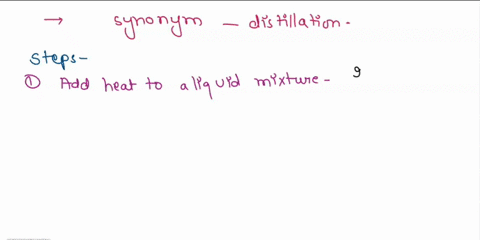 → synonym – distillation.
Steps-
① Add heat to a liquid mixture - 9